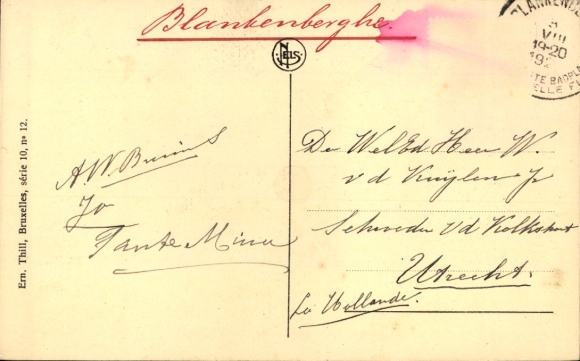 Blankenberghe.
BLANKENB
VIII
19-20
192
TE BADPLA
ELLE P
NELS
Ern. Thill, Bruxelles, série 10, nº 12.
A. W. Bruins
Jo
Tante Mina
Den WelEd Heer W.
v d Kuylen Jr
Schroeder v/d Kolkstraat
Utrecht.
La Hollande.